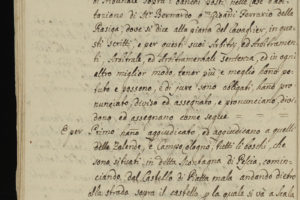 tazione di Ser Bernardo
Rasiga, dove si dice alla piana del Chioso, in
questi scritti, e per questi suoi ed Arbitramen
ti, Arbitrale ed Arbitramentale Sentenza, ed in ogni
altro miglior modo, tenor più e meglio hanno po
tuto e possono, e di jure sono obligati, hanno pro
nunciato, diviso ed assegnato, e pronunciano, divi
dono, ed assegnano come segue
E per Primo hanno aggiudicato, ed aggiudicano a quelli
delle e Campo ologno, tutti li boschi, che
sono situati, in detta Montagna di comin
ciando, dal Castello di Piatta mala andando dietro
alla strada sopra il castello la quale si và a Scala